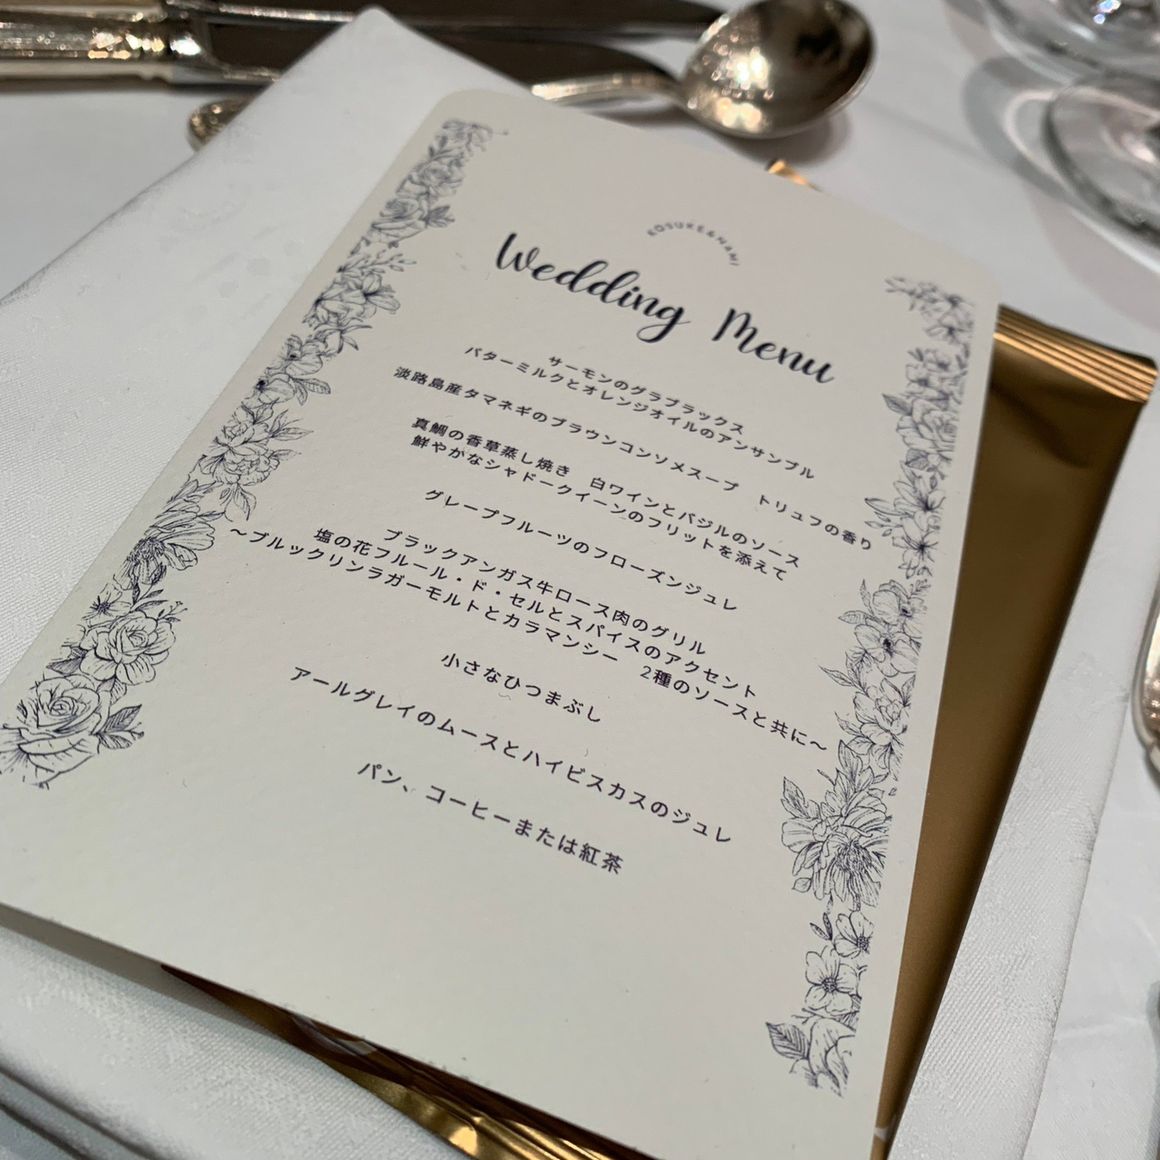 KOSUKE&NAMI
Wedding Menu
サーモンのグラブラックス
バターミルクとオレンジオイルのアンサンブル
淡路島産タマネギのブラウンコンソメスープ　トリュフの香り
真鯛の香草蒸し焼き　白ワインとバジルのソース
鮮やかなシャドークイーンのフリットを添えて
グレープフルーツのフローズンジュレ
ブラックアンガス牛ロース肉のグリル
塩の花フルール・ド・セルとスパイスのアクセント
～ブルックリンラガーモルトとカラマンシー　2種のソースと共に～
小さなひつまぶし
アールグレイのムースとハイビスカスのジュレ
パン、コーヒーまたは紅茶